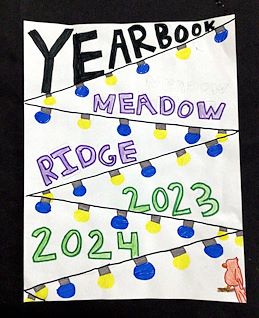 YEARBOOK
MEADOW
RIDGE
2023
2024